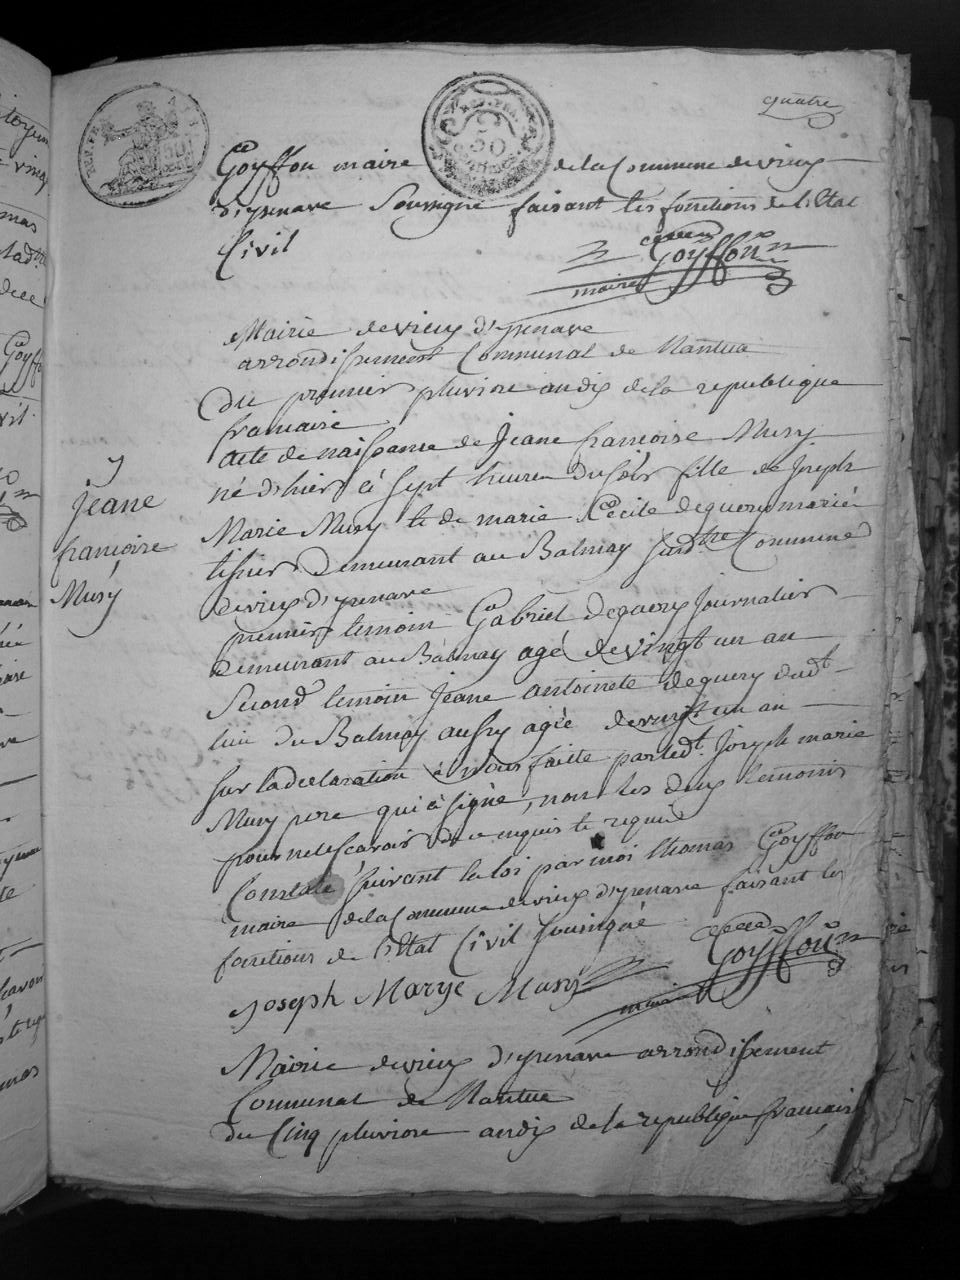 quatre
REP. FRA.
50
centimes
Goyffon maire de la Commune de vieux
d'yzenave Soussigné faisant les fonctions de l'Etat
Civil
Goyffon
maire
Mairie de vieux d'yzenave
arrondissement Communal de Nantua
Du premier pluviose an dix de la republique
francaise
acte de naissance de Jeane francoise Musy
né d'hier à sept heures du soir fille de Joseph
Marie Musy et de marie Cecile deguery mariés
tissier demeurant au Balmay Commune
de vieux d'yzenave
premier temoin Gabriel deguery Journalier
demeurant au Balmay agé de vingt un an
Second temoin Jeane antoinete deguery dudt
lieu du Balmay aussy agée de vingt un an
Sur la declaration à nous faitte par ledt Joseph marie
Musy pere qui à signé, non les deux temoins
pour ne le scavoir de ce enquis et requis
Constaté suivant la loi par moi thomas Goyffon
maire de la Commune de vieux d'yzenave faisant les
fonctions de l'Etat Civil soussigné
Goyffon
Joseph Marye Musy
maire
Jeane
francoise
Musy
Mairie de vieux d'yzenave arrondissement
Communal de Nantua
du Cinq pluviose an dix de la republique francaise